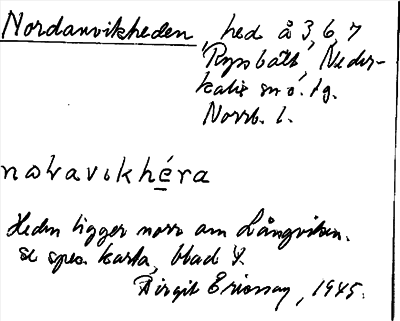 Nordanvikheden, hed å 3, 6, 7
Rysbält, Neder-
kalix sn o. tg.
Norrb. l.
noravikhéra
Heden ligger norr om Långviken.
se spec. karta, blad 4.
Birgit Ericsson, 1945.